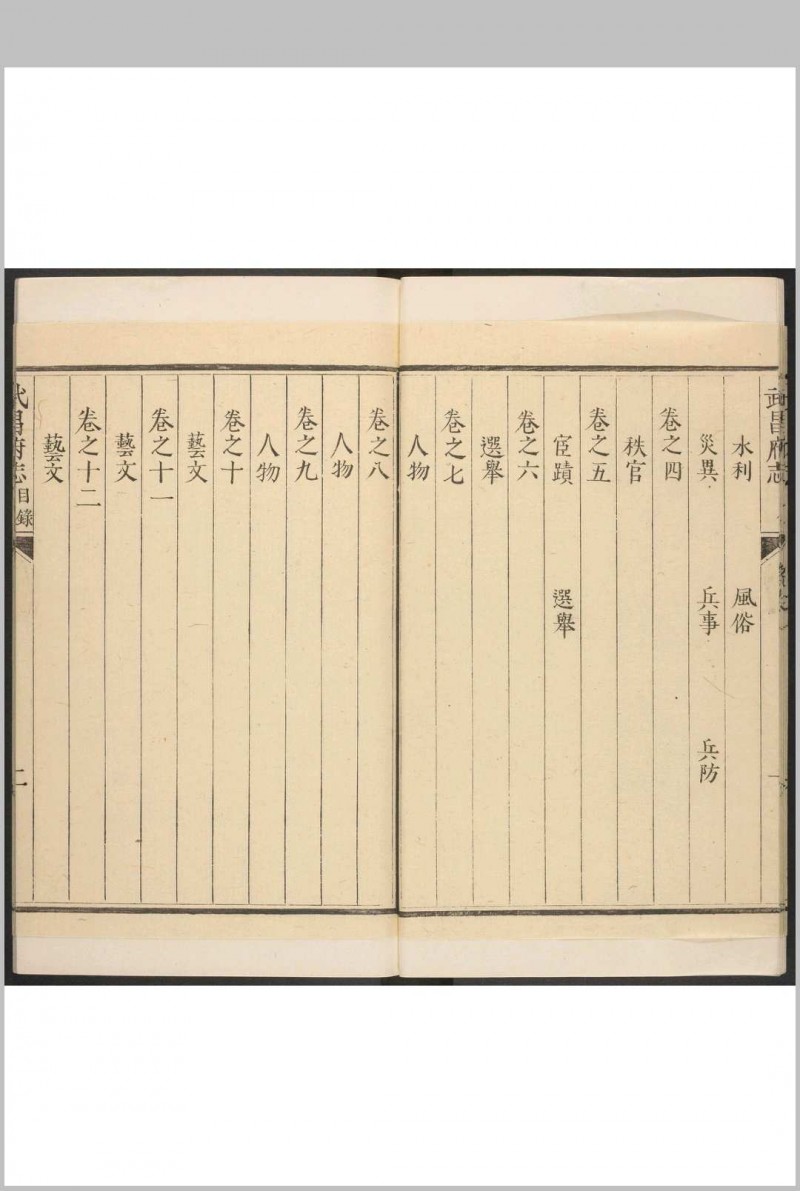 武昌府志
水利　風俗
災異　兵事　兵防
卷之四
秩官
卷之五
宦蹟　選舉
卷之六
選舉
卷之七
人物
卷之八
人物
卷之九
人物
卷之十
藝文
卷之十一
藝文
卷之十二
藝文
武昌府志　目錄　二